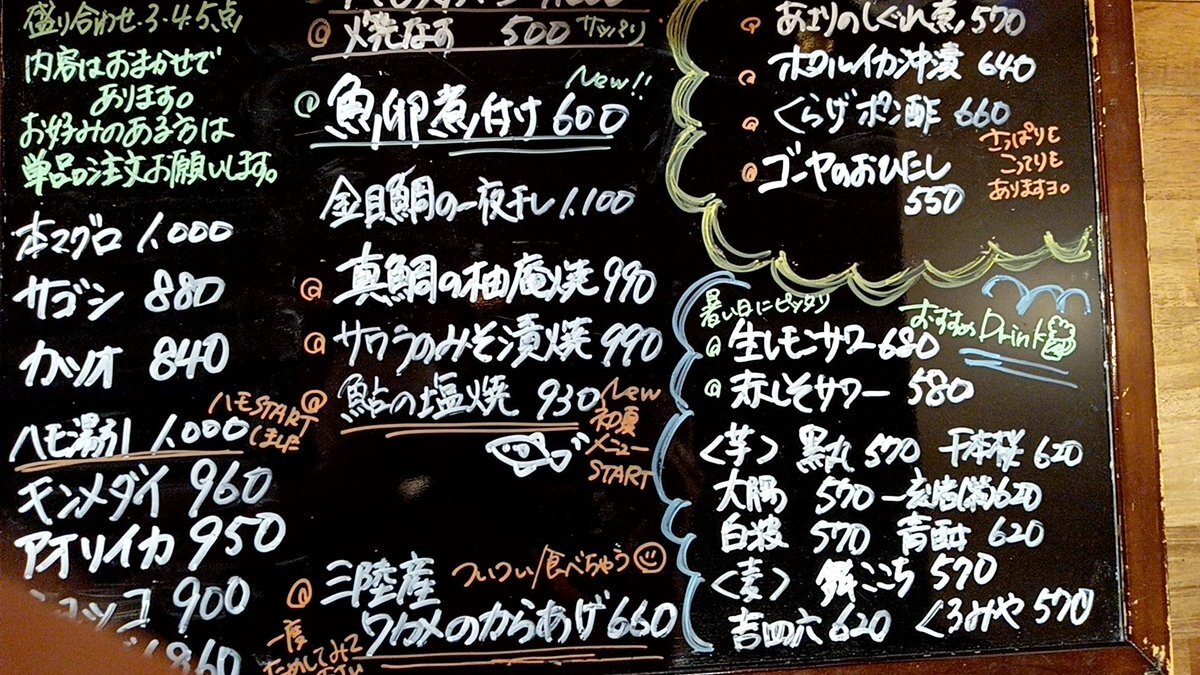 盛り合わせ・3・4・5点
内容はおまかせで
あります。
お好みのある方は
単品ご注文お願いします。
本マグロ 1,000
サゴシ 880
カツオ 840
ハモ湯引 1,000
ハモSTART
しました
キンメダイ 960
アオリイカ 950
900
860
焼なす 500 サッパリ
New!!
魚卵煮付け 600
金目鯛の一夜干し 1,100
真鯛の柚庵焼 990
サワラのみそ漬焼 990
鮎の塩焼 930
New
初夏
メニュー
START
三陸産
ついつい食べちゃう
ワカメのからあげ 660
一度
ためしてみて
あさりのしぐれ煮 570
ホタルイカ沖漬 640
くらげポン酢 660
ゴーヤのおひたし
550
さっぱりも
こってりも
ありますヨ。
暑い日にピッタリ
おすすめ Drink
生レモンサワー 680
赤しそサワー 580
<芋> 黒丸 570 千本桜 620
大陽 570 一刻者 620
白波 570 青酎 620
<麦> 570
吉四六 620 くろみや 570